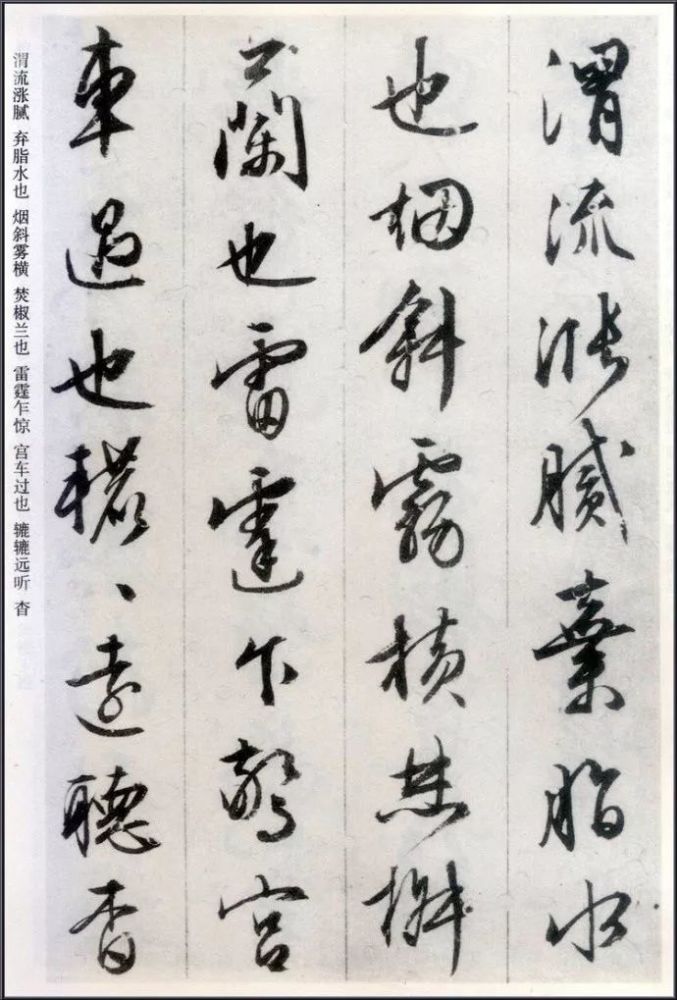 渭流漲膩棄脂水
也烟斜霧橫焚椒
蘭也雷霆乍驚宮
車過也轆、遠聽杳
渭流涨腻 弃脂水也 烟斜雾横 焚椒兰也 雷霆乍惊 宫车过也 辘辘远听 杳